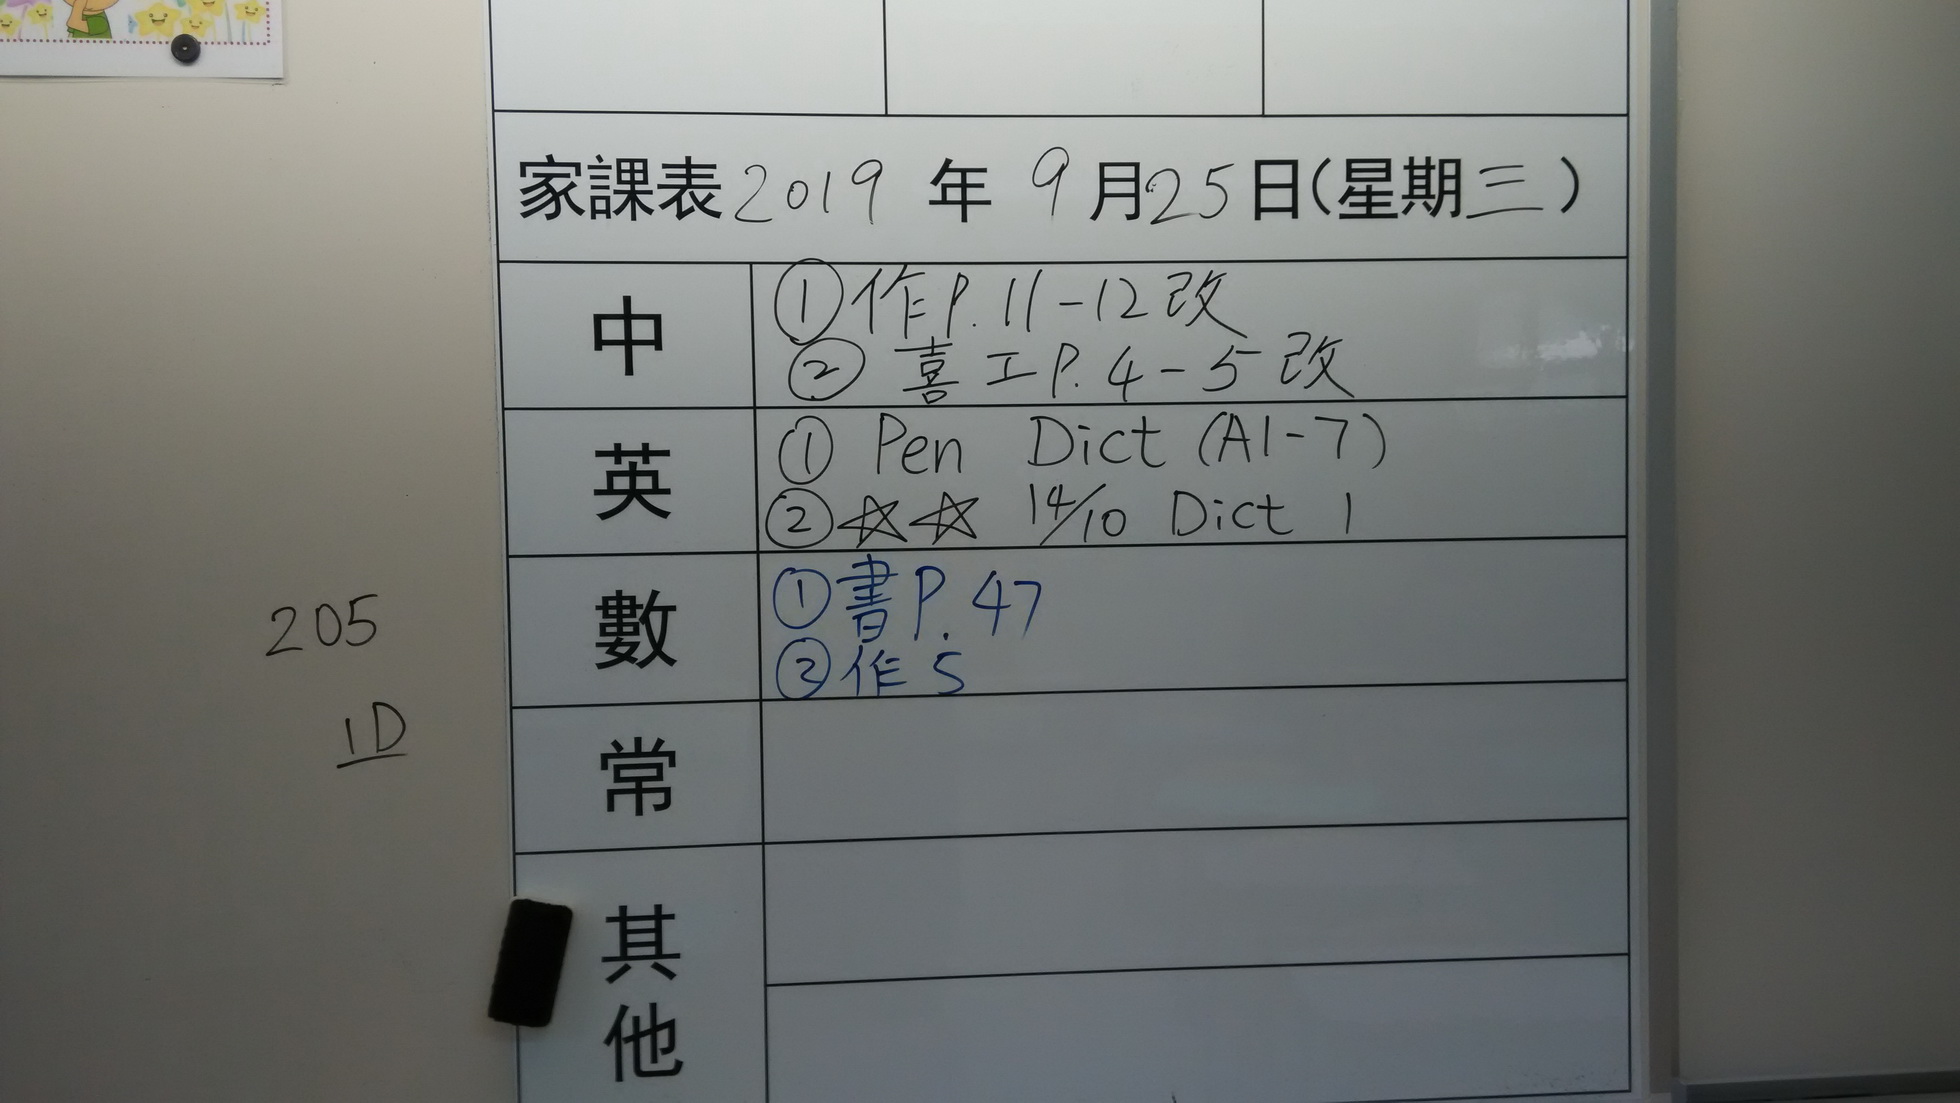 家課表 2019 年 9 月 25 日(星期三)
中
①作P.11-12改
②喜工P.4-5改
英
① Pen Dict (A1-7)
②☆☆ 14/10 Dict 1
數
①書P.47
②作5
常
其他
205
1D